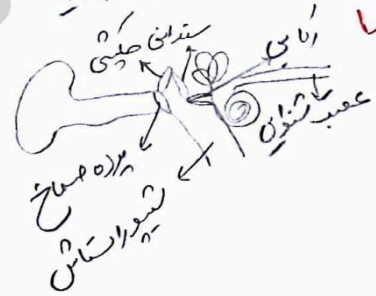 سندانی چکشی
رکابی
عصب شنوایی
پرده صماخ
شیپور استاش